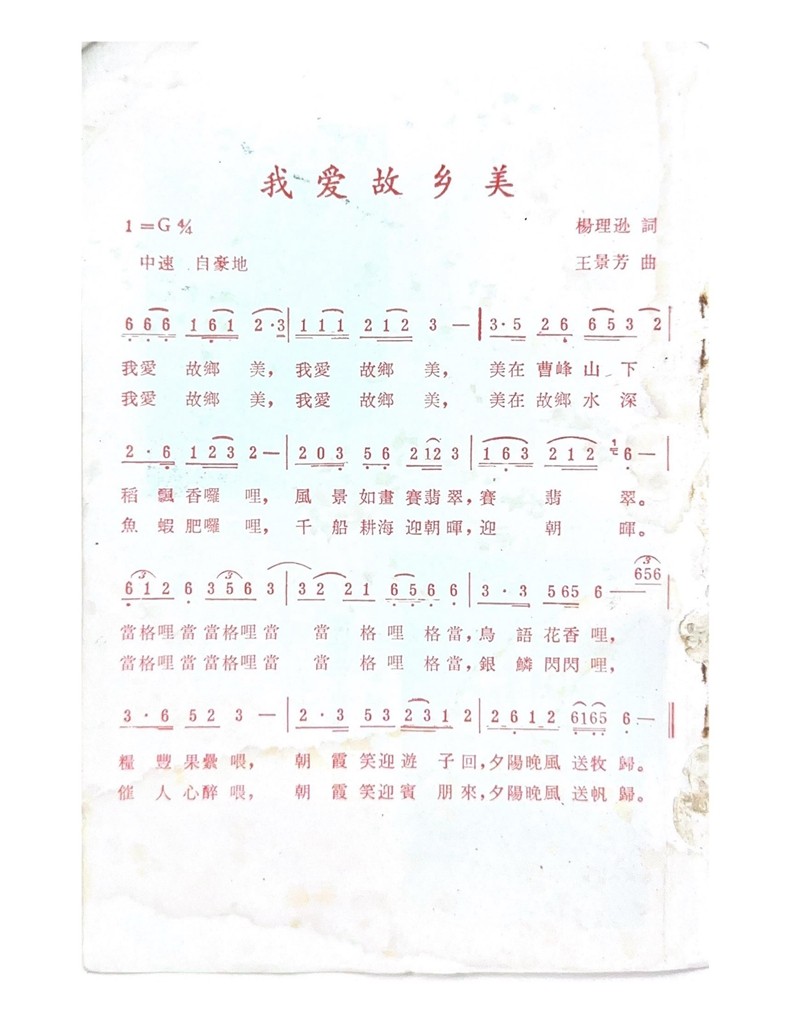 我爱故乡美
1=G 4/4
楊理遜 詞
中速 自豪地
王景芳 曲
6 6 6 1 6 1 2·3 | 1 1 1 2 1 2 3 — | 3·5 2 6 6 5 3 2 |
我愛 故鄉 美，我愛 故鄉 美， 美在 曹峰 山 下
我愛 故鄉 美，我愛 故鄉 美， 美在 故鄉 水 深
2·6 1 2 3 2 — | 2 0 3 5 6 2 1 2 3 | 1 6 3 2 1 2 1 6 — |
稻 飄 香囉 哩，風 景 如畫 賽翡翠，賽 翡 翠。
魚 蝦 肥囉 哩，千 船 耕海 迎朝暉，迎 朝 暉。
3 3 3
6 1 2 6 3 5 6 3 | 3 2 2 1 1 6 5 6 6 | 3·3 5 6 5 6 — 6 5 6 |
當格哩當當格哩當 當 格 哩 格當，鳥 語 花香 哩，
當格哩當當格哩當 當 格 哩 格當，銀 鱗 閃閃 哩，
3·6 5 2 3 — | 2·3 5 3 2 3 1 2 | 2 6 1 2 6 1 6 5 6·—
糧 豐 果纍 喂， 朝 霞 笑迎 遊 子回，夕陽晚風 送牧 歸。
催 人 心醉 喂， 朝 霞 笑迎 賓 朋來，夕陽晚風 送帆 歸。